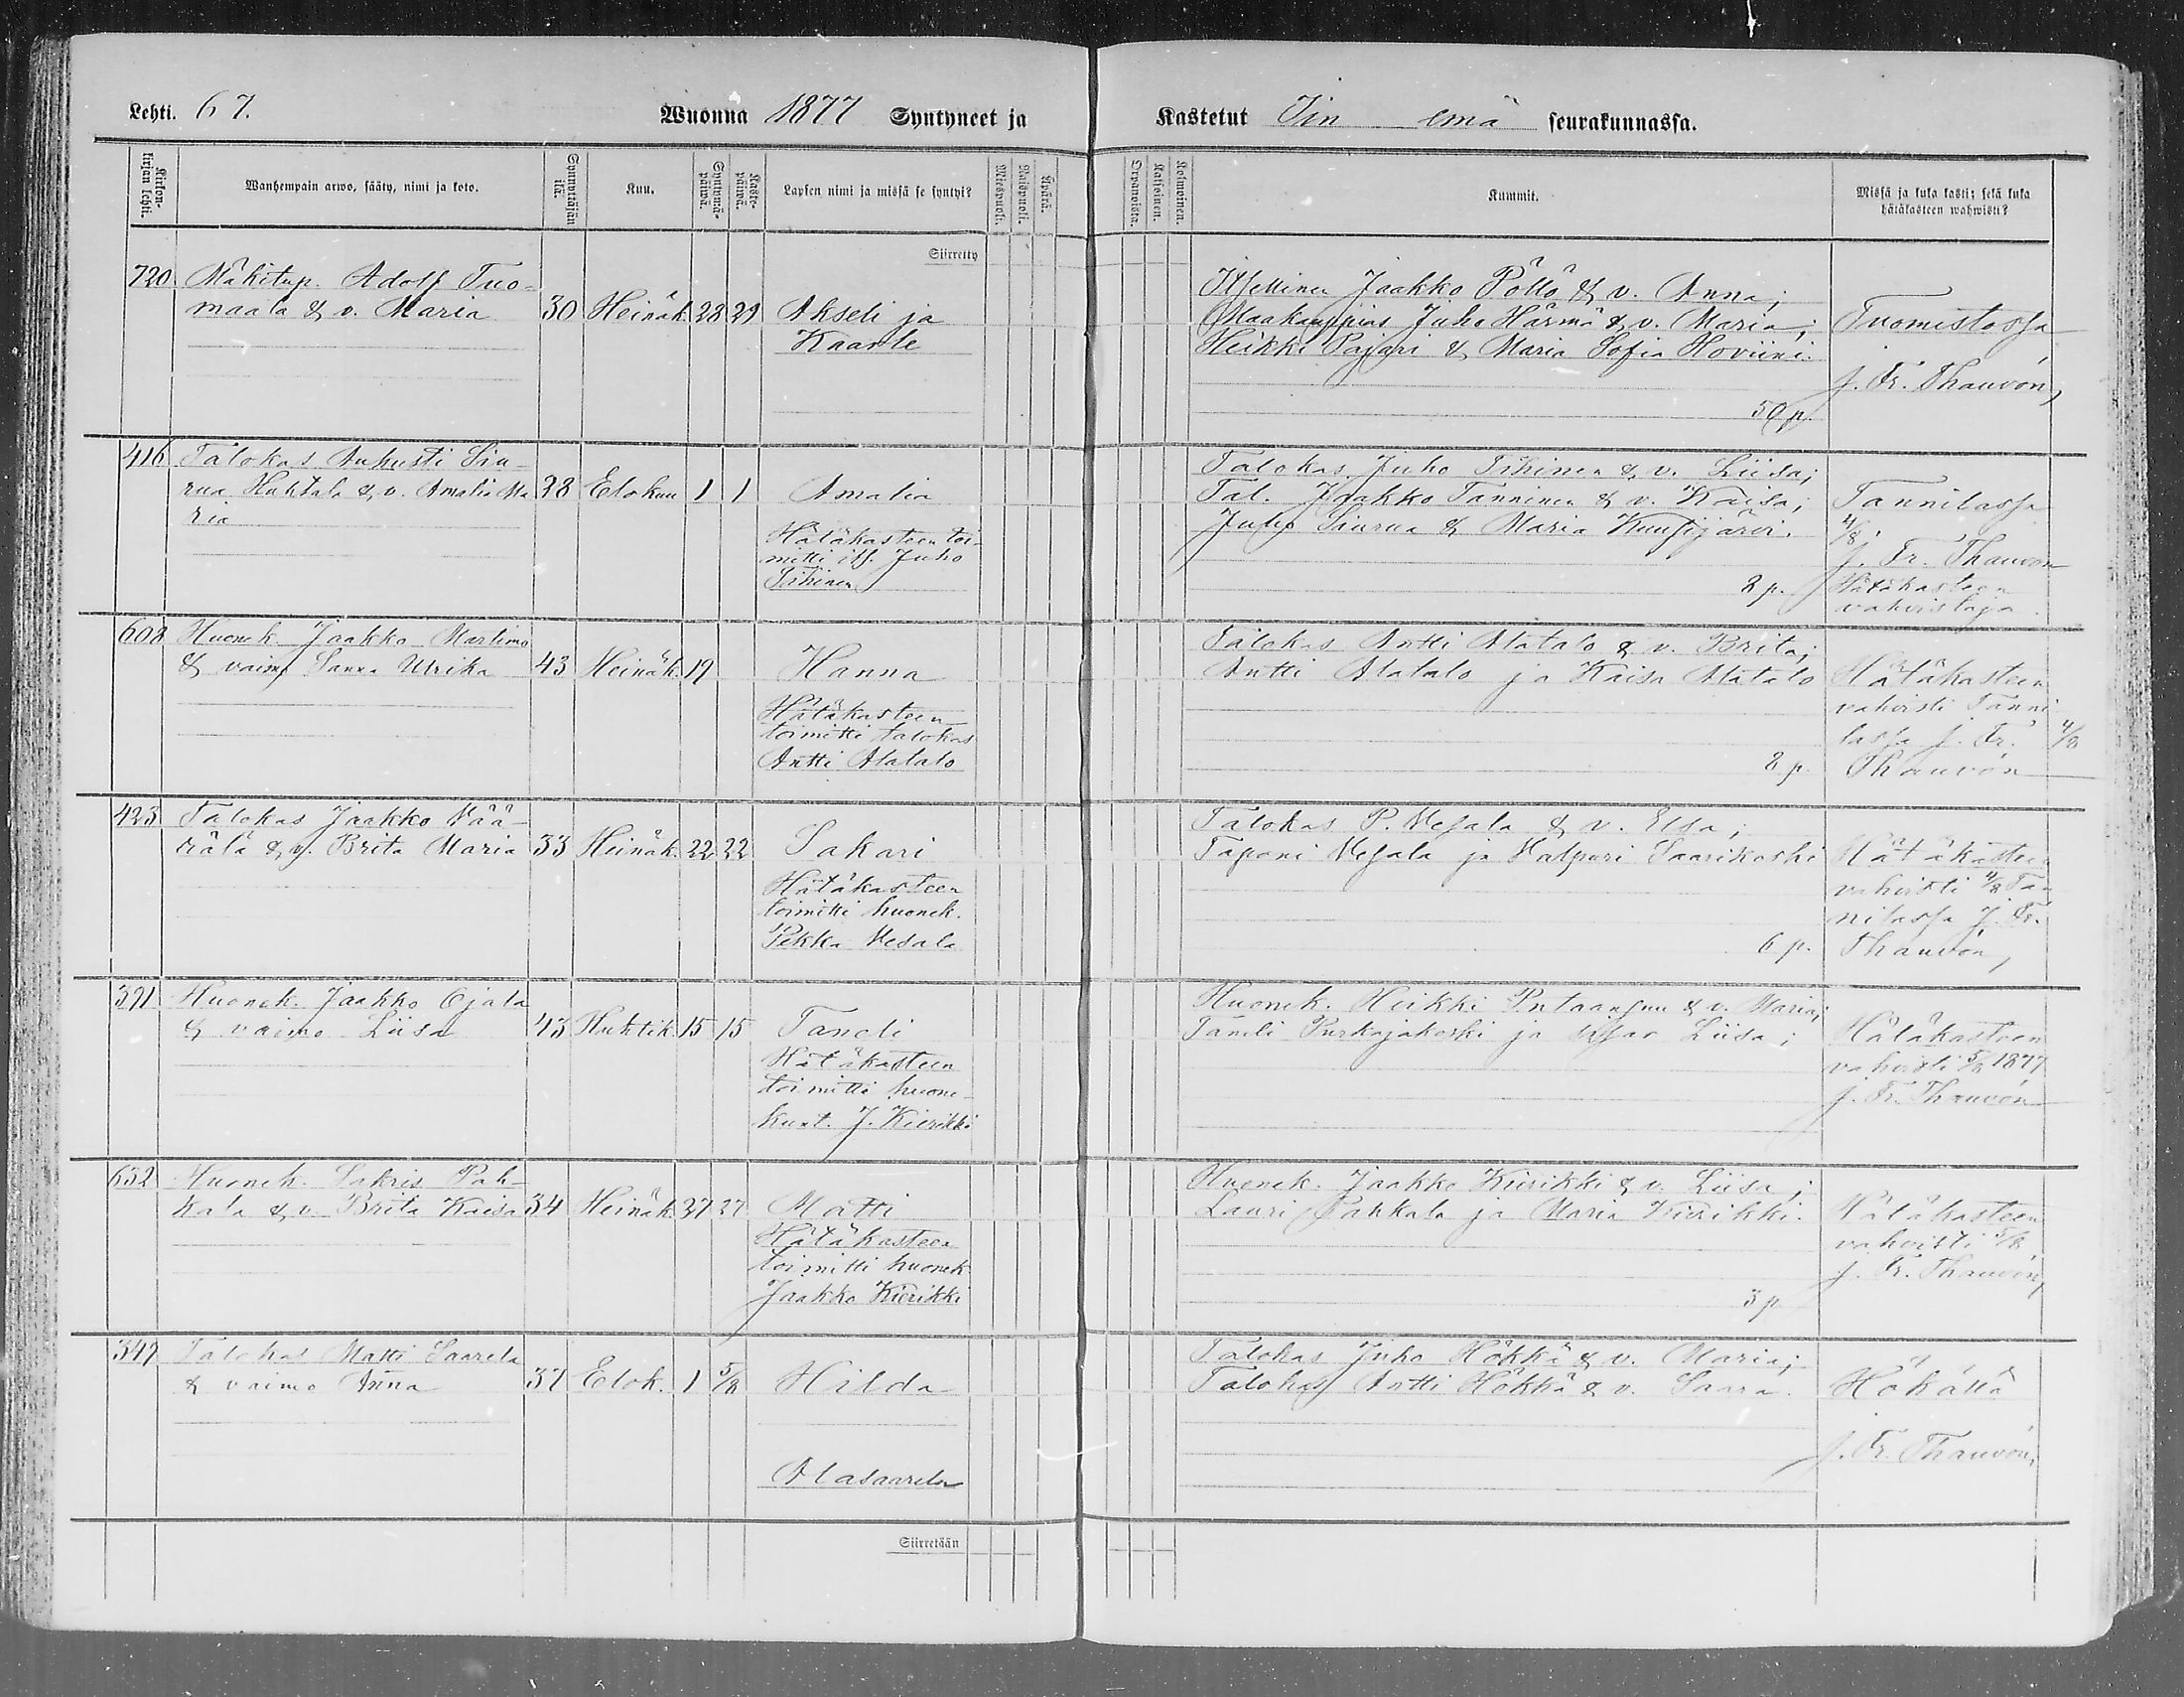 Lehti. 67.
Wuonna 1877 Syntyneet ja
Kastetut Iin emä seurakunnassa.
Kirkon-kirjan lehti.
Wanhempain arwo, sääty, nimi ja koto.
Synnyttäjän ikä.
Kuu.
Syntymä-päiwä.
Kaste-päiwä.
Lapsen nimi ja missä se syntyi?
Miespuoli.
Waimopuoli.
Äpärä.
Orpanoista.
Kaksoinen.
Kolmoinen.
Kummit.
Missä ja kuka kasti; sekä kuka
hätäkasteen wahwisti?
Siirretty
720 Mäkitup. Adolf Tuo-
maala & v. Maria 30 Heinäk. 28 29 Akseli ja
Kaarle
Jaakko Pöllö & v. Anna;
Maakauppias Juho Härmä & v. Maria;
Heikki Pajari & Maria Sofia Hoviini.
50 p.
Tuomistossa
J. Fr. Thauvón,
416 Talokas Aukusti Siu-
rua Huhtala & v. Amalia Ma 28 Elokuu 1 1 Amalia
ria
Hätäkasteen toi-
mitti its. Juho
Tihinen
Talokas Juho Tihinen & v. Liisa;
Tal. Jaakko Tanninen & v. Kaisa;
Juho Siurua & Maria Kuusijärvi.
2 p.
Tannilassa
4/8
J. Fr. Thauvón
Hätäkasteen
vahvistaja
608 Huonek. Jaakko Martimo
& vaimo Sanna Ulrika 43 Heinäk. 19 Hanna
Hätäkasteen
toimitti talokas
Antti Alatalo
Talokas Antti Alatalo & v. Brita;
Antti Alatalo ja Kaisa Alatalo
2 p.
Hätäkasteen
vahvisti Tanni
lassa J. Fr. 4/8
Thauvón
423 Talokas Jaakko Vää-
rälä & v. Brita Maria 33 Heinäk. 22 22 Sakari
Hätäkasteen
toimitti huonek.
Pekka Vesala
Talokas P. Vesala & v. Elsa;
Tapani Vesala ja Valpuri Saarikoski
6 p.
Hätäkasteen
vahvisti 4/8 Tan
nilassa J. Fr.
Thauvón,
391 Huonek. Jaakko Ojala
& vaimo Liisa 43 Huhtik. 15 15 Taneli
Hätäkasteen
toimitti huone-
kunt. J. Kierikki
Huonek. Heikki & v. Maria;
Taneli Purkajakoski ja sisar Liisa;
Hätäkasteen
vahvisti 5/8 1877
J. Fr. Thauvón
652 Huonek. Sakris Pah-
kala & v. Brita Kaisa 34 Heinäk. 27 27 Matti
Hätäkasteen
toimitti huonek.
Jaakko Kierikki
Huonek. Jaakko Kierikki & v. Liisa;
Lauri Pahkala ja Maria Kierikki.
3 p.
Hätäkasteen
vahvisti 5/8
J. Fr. Thauvón,
349 Talokas Matti Saarela
& vaimo Anna 37 Elok. 1 5/8 Hilda
Alasaarela
Talokas Juho Hökkä & v. Maria;
Talokas Antti Hökkä & v. Saara.
Hökällä
J. Fr. Thauvón,
Siirretään